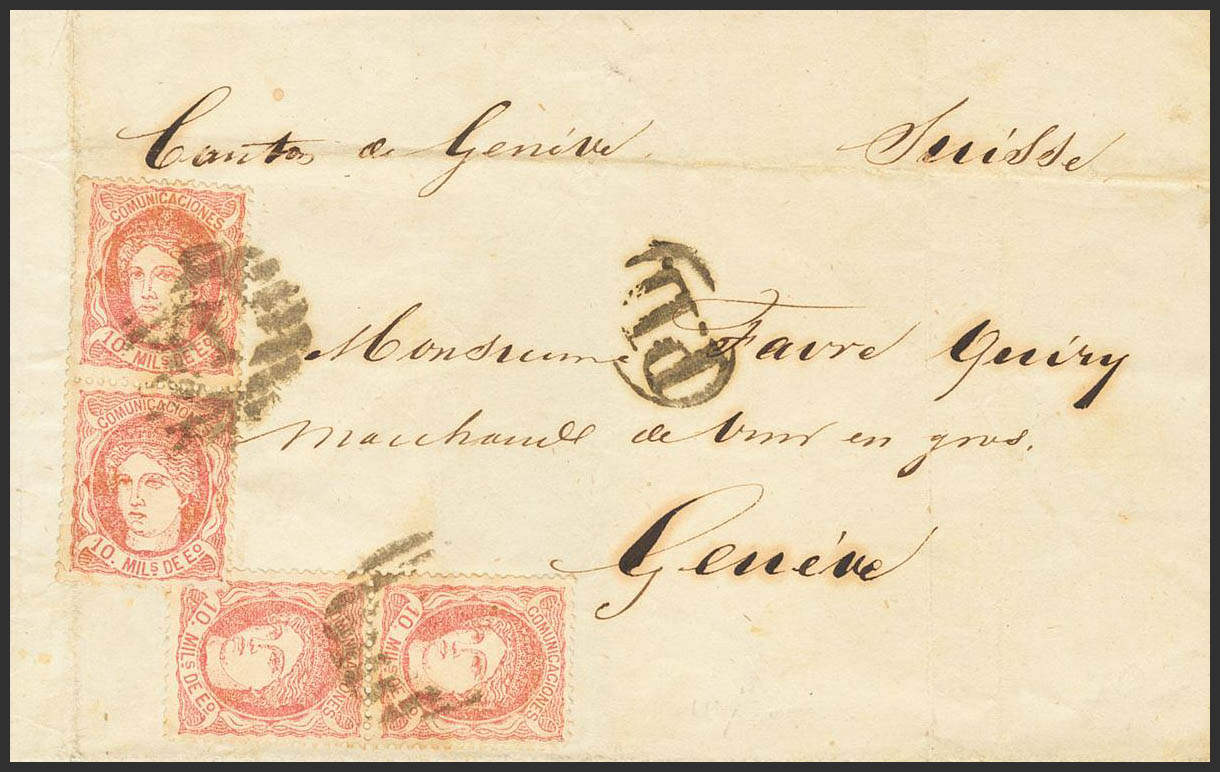 Canton de Genéve. Suisse
COMUNICACIONES
10. MILS. DE Eº.
P.D.
Monsieur Favre Quiry
COMUNICACIONES
Marchand de vins en gros.
10. MILS. DE Eº.
Genéve
10. MILS. DE Eº.
COMUNICACIONES
10. MILS. DE
COMUNICACIONES